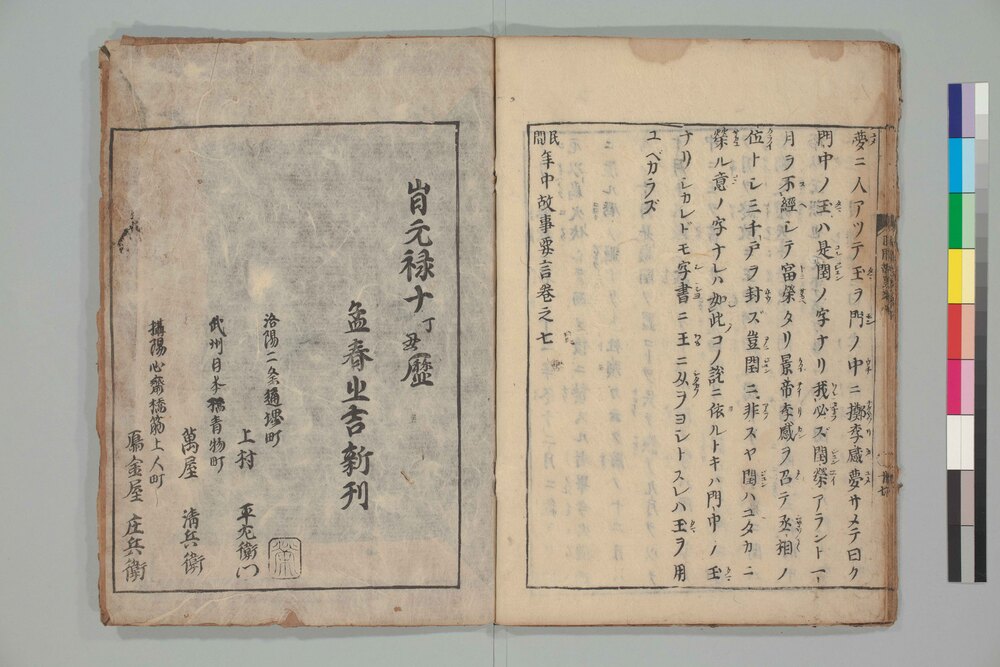 夢ニ人アツテ玉ヲ門ノ中ニ擲李感夢サメテ曰ク
門中ノ玉ハ是閏ノ字ナリ我必ズ閏榮アラント一
月ヲ不經シテ富榮タリ景帝李感ヲ召テ丞相ノ
位トシ三千戸ヲ封ズ豈閏ニ非スヤ閏ハユタカニ
榮ル意ノ字ナレハ如此コノ説ニ依ルトキハ門中ノ玉
ナリシカレドモ字書ニ王ニ从ヲヨシトスレハ王ヲ用
ユベカラズ
民間年中故事要言巻之七
旹元禄十丁丑暦
孟春之吉新刊
洛陽二条通堺町
上村 平左衛门
武州日本橋青物町
萬屋 清兵衛
攝陽心齋橋筋上人町
鳫金屋 庄兵衛